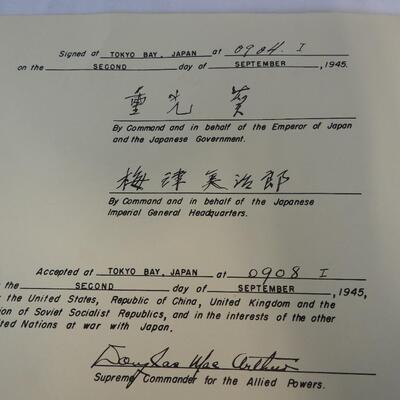 Signed at TOKYO BAY, JAPAN at 0904 I
on the SECOND day of SEPTEMBER, 1945.
重光葵
By Command and in behalf of the Emperor of Japan
and the Japanese Government.
梅津美治郎
By Command and in behalf of the Japanese
Imperial General Headquarters.
Accepted at TOKYO BAY, JAPAN at 0908 I
the SECOND day of SEPTEMBER, 1945,
the United States, Republic of China, United Kingdom and the
ion of Soviet Socialist Republics, and in the interests of the other
ted Nations at war with Japan.
Douglas MacArthur
Supreme Commander for the Allied Powers.